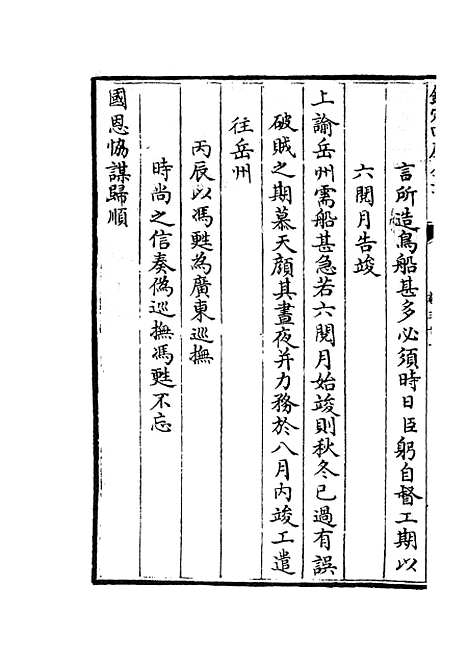 言所造鳥船甚多必須時日臣躬自督工期以
六閱月告竣
上諭岳州需船甚急若六閱月始竣則秋冬已過有誤
破賊之期慕天顏其晝夜并力務於八月內竣工遣
往岳州
丙辰以馮甦為廣東巡撫
時尚之信奏偽巡撫馮甦不忘
國恩恊謀歸順